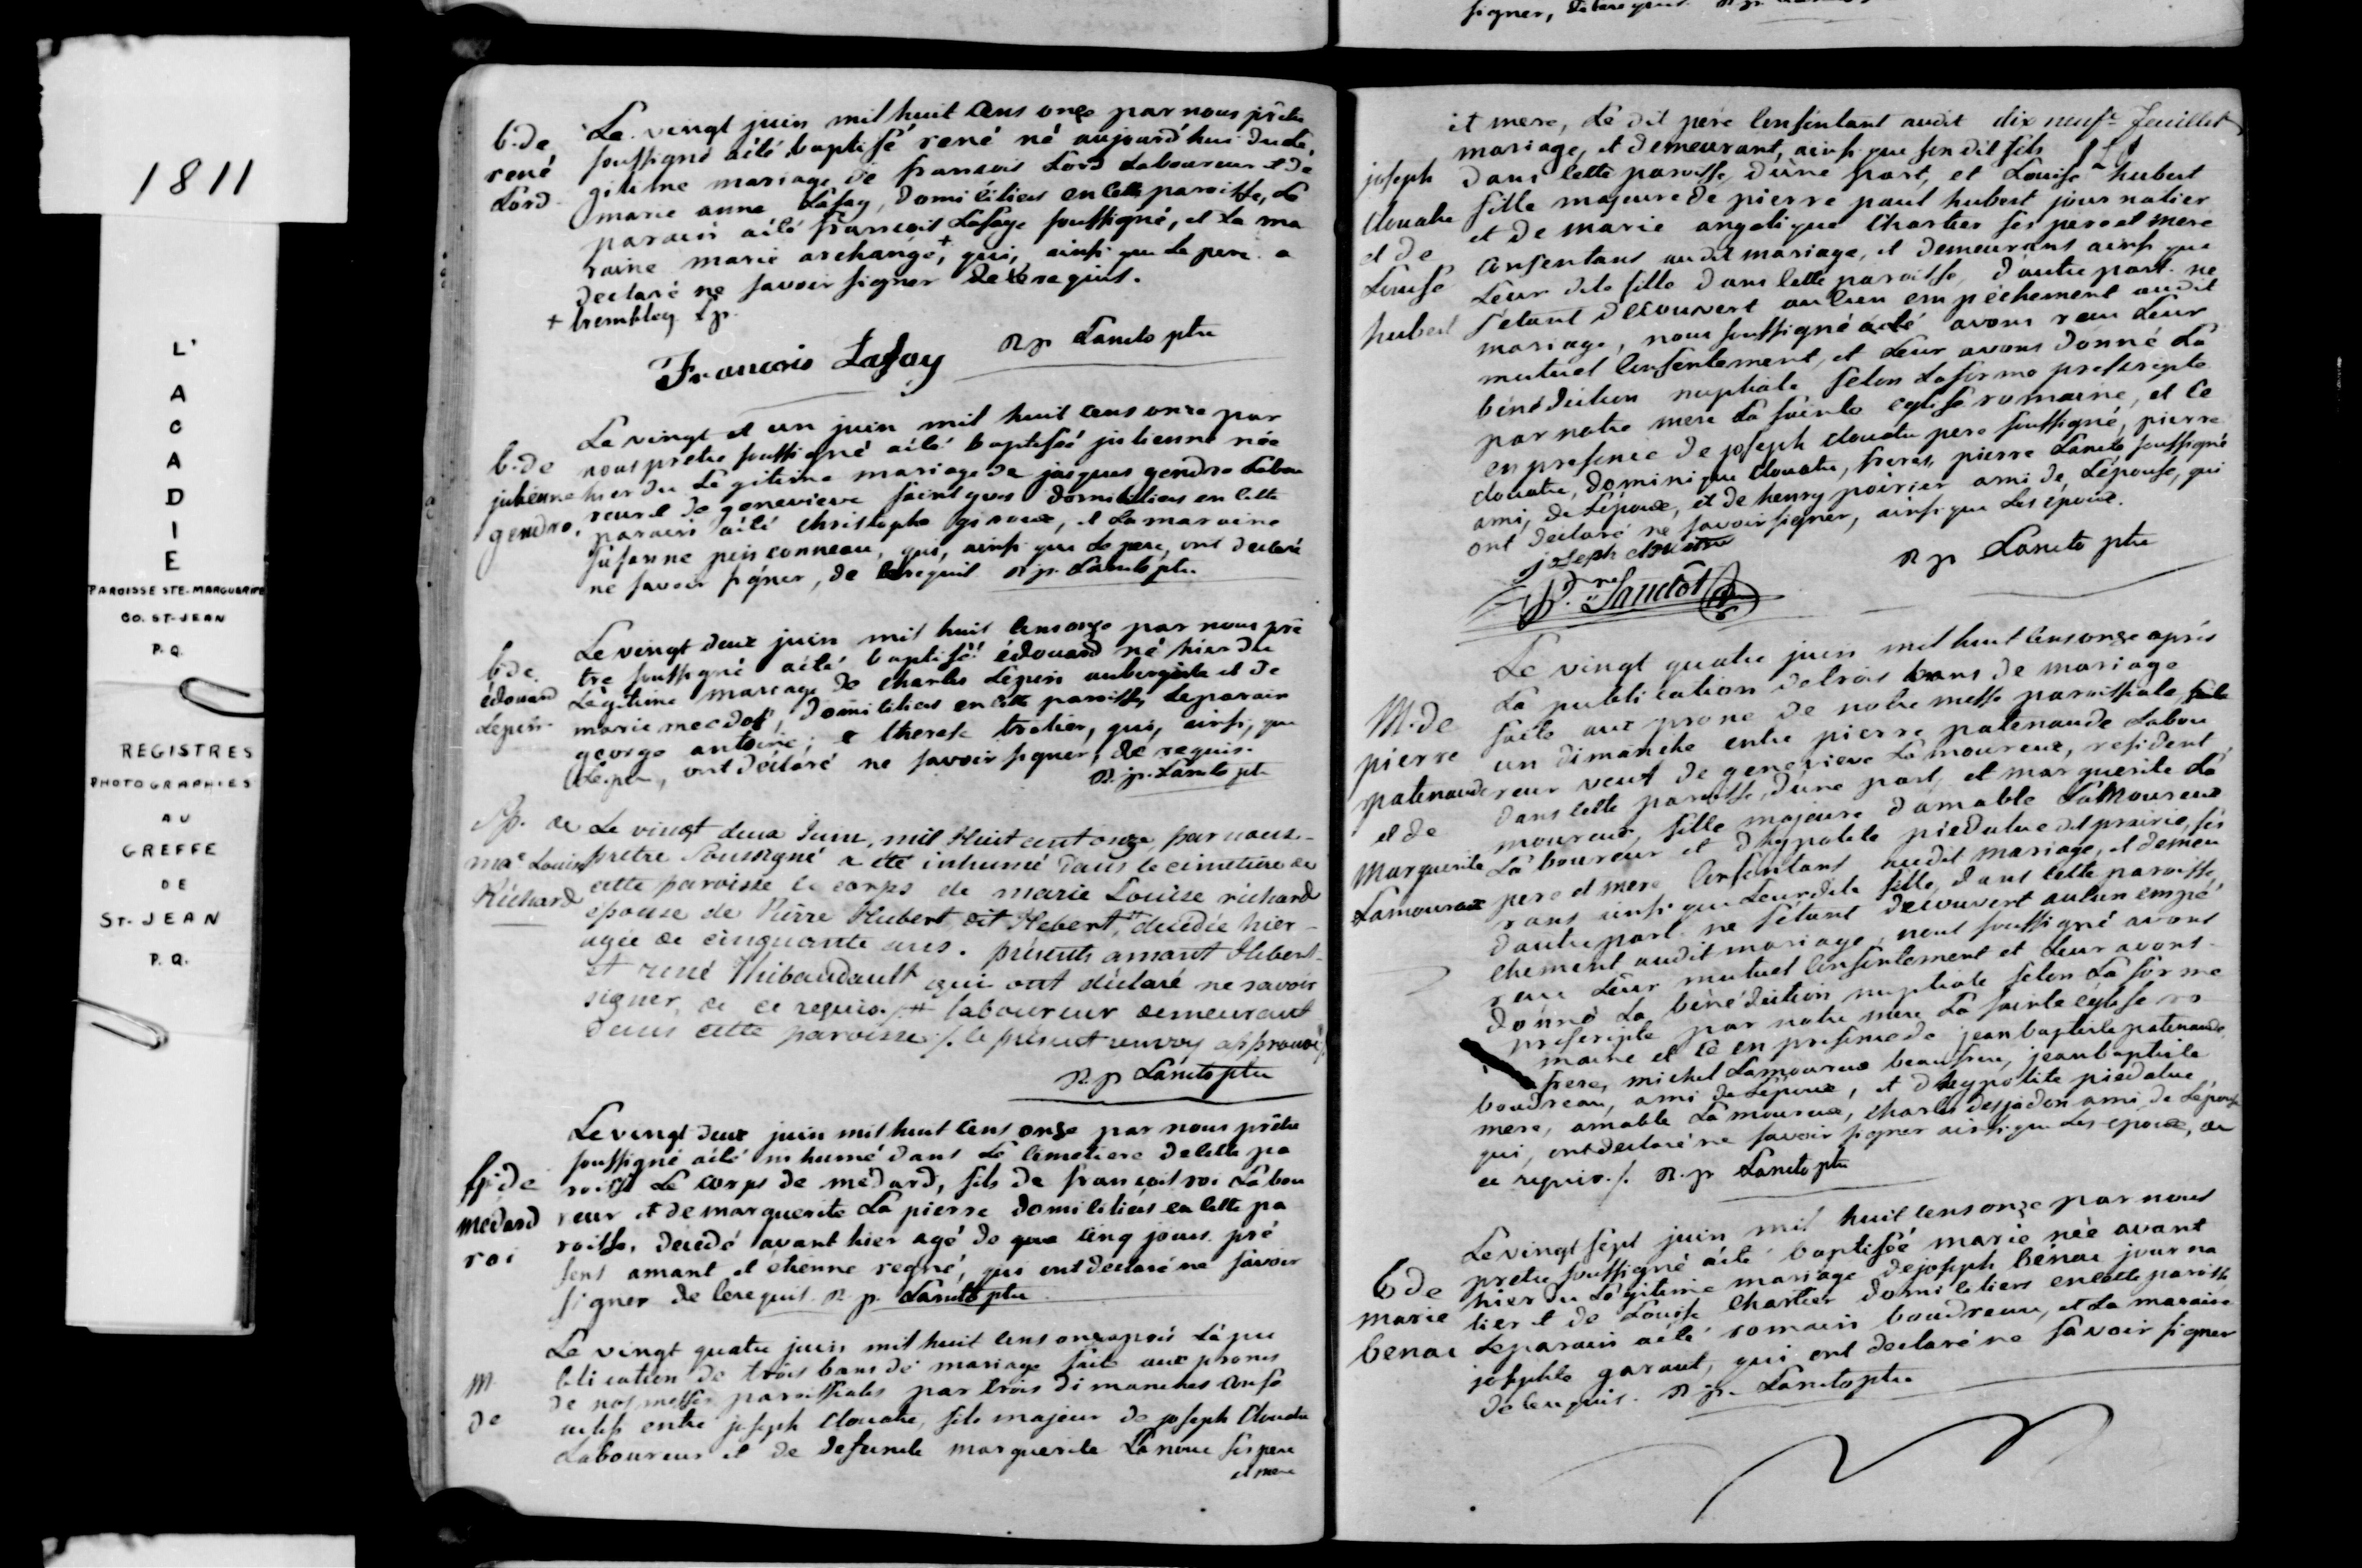 1811
L'
A
C
A
D
I
E
PAROISSE STE-MARGUERITE
CO. ST-JEAN
P.Q.
REGISTRES
PHOTOGRAPHIES
AU
GREFFE
DE
ST-JEAN
P.Q.
b. de
rené
Lord
Le vingt juin mil huit cens onze par nous prêtre
soussigné a été baptisé rené né aujourd'hui du lé
gitime mariage de francois Lord Laboureur et de
marie anne Lafay, domiciliés en cette paroisse, Le
parain a été francois Lafaye soussigné, et La ma
raine marie archange +, qui, ainsi que Le pere a
declaré ne savoir signer de ce requis.
+ trembley
Francois Lafay R p Lancto ptre
b. de
julienne
gendro.
Le vingt et un juin mil huit cens onze par
nous prêtre soussigné a été baptisée julienne née
hier du Legitime mariage de jacques gendro Labou
reur et de genevieve saint yves domiciliés en cette
parain a été christophe giroux, et La maraine
susanne peinconneau, qui, ainsi que Le pere, ont declaré
ne savoir signer, de ce requis. R. p. Lancto ptre
b. de
édouard
Lepin
Le vingt deux juin mil huit cens onze par nous prê
tre soussigné a été baptisé édouard né hier du
Légitime mariage de charles Lepin aubergiste et de
marie domiciliés en cette paroisse, Le parain
george antoine, et therese tretier, qui, ainsi, que
Le pere, ont déclaré ne savoir signer, de requis.
R. p. Lancto ptre
Sp. de
mae Louise
Richard
Le vingt deux Juin, mil Huit cent onze, par nous
prêtre Soussigné a été inhumé dans le cimetière de
cette paroisse le corps de marie Louise richard
épouse de Pierre Hubert dit Hebert # décédée hier
agée de cinquante ans. présents amant Hebert
et rené Thibaudault qui ont déclaré ne savoir
signer, de ce requis. # laboureur demeurant
dans cette paroisse /. le présent renvoy approuvé /.
R. p Lancto ptre
Sp. de
médard
roi
Le vingt deux juin mil huit cens onze par nous prêtre
soussigné a été inhumé dans Le cemetiere de cette pa
roisse Le corps de médard, fils de francois roi Labou
reur et de marguerite La pierre domiciliés en cette pa
roisse, decedé avant hier agé de cinq jours. pré
sens amant et étienne regné, qui ont declaré ne savoir
signer de ce requis. R. p. Lancto ptre
M
de
Le vingt quatre juin mil huit cens onze après La pu
blication de trois bans de mariage faite aux prones
de nos messes paroissiales par trois dimanches consé
cutifs entre joseph clouatre, fils majeur de joseph Clouatre
Laboureur et de defunte marguerite La noue ses pere
et mere
joseph
clouatre
et de
Louise
hubert
dix neufe. feuillet
et mere, Le dit père consentant audit
mariage, et demeurant, ainsi que son dit fils
dans cette paroisse, d'une part, et Louise hubert
fille majeure de pierre paul hubert journalier
et de marie angelique chartier ses pere et mere
consentans audit mariage, et demeurans ainsi que
Leur dite fille dans cette paroisse, d'autre part. ne
s'étant découvert aucun empêchement audit
mariage, nous soussigné avons reçu Leur
mutuel consentement, et Leur avons donné La
bénédiction nuptiale selon La forme prescripte
par notre mere La sainte eglise romaine, et ce
en presence de joseph clouatre pere soussigné, pierre
clouatre, dominique clouatre, freres, pierre Lancto soussigné
ami, de L'époux, et de henry poirier ami de L'épouse, qui
ont declaré ne savoir signer, ainsi que Les epoux.
joseph
Pre. Lanctôt R p Lancto ptre
M. de
pierre
patenaude
et de
marguerite
Lamoureux
Le vingt quatre juin mil huit cens onze après
La publication de trois bans de mariage
faite aux prone de notre messe paroissiale,
un dimanche entre pierre patenaude Labou
reur veuf de genevieve Lamoureux, resident
dans cette paroisse, d'une part, et marguerite La
moureux, fille majeure d'amable Lamoureux
Laboureur et d'hypolite piedalue dit prairie, ses
pere et mere consentans audit mariage, et demeu
rans ainsi que Leur dite fille, dans cette paroisse,
d'autre part. ne s'étant decouvert aucun empê
chement audit mariage, nous soussigné avons
reçu Leur mutuel consentement et Leur avons
donné La bénédiction nuptiale selon La forme
prescripte par notre mere La sainte église ro
maine et ce en presence de jean baptiste patenaude
frere, michel Lamoureux beaufrere, jean baptiste
boudreau, ami de L'époux, et d'heypolite piedalue
mere, amable Lamoureux, charles desjadon ami de L'épouse
qui, ont declaré ne savoir signer ainsi que Les epoux, de
ce requis. /. R. p Lancto ptre
b de
marie
benac
Le vingt sept juin mil huit cens onze par nous
pretre soussigné a été baptisée marie née avant
hier du Légitime mariage de joseph bénac journa
lier et de Louise chartier domiciliers en cette paroisse
Le parain a été romain boudreau, et La maraine
josephte garant, qui ont declaré ne savoir signer
de ce requis. R. p. Lancto ptre